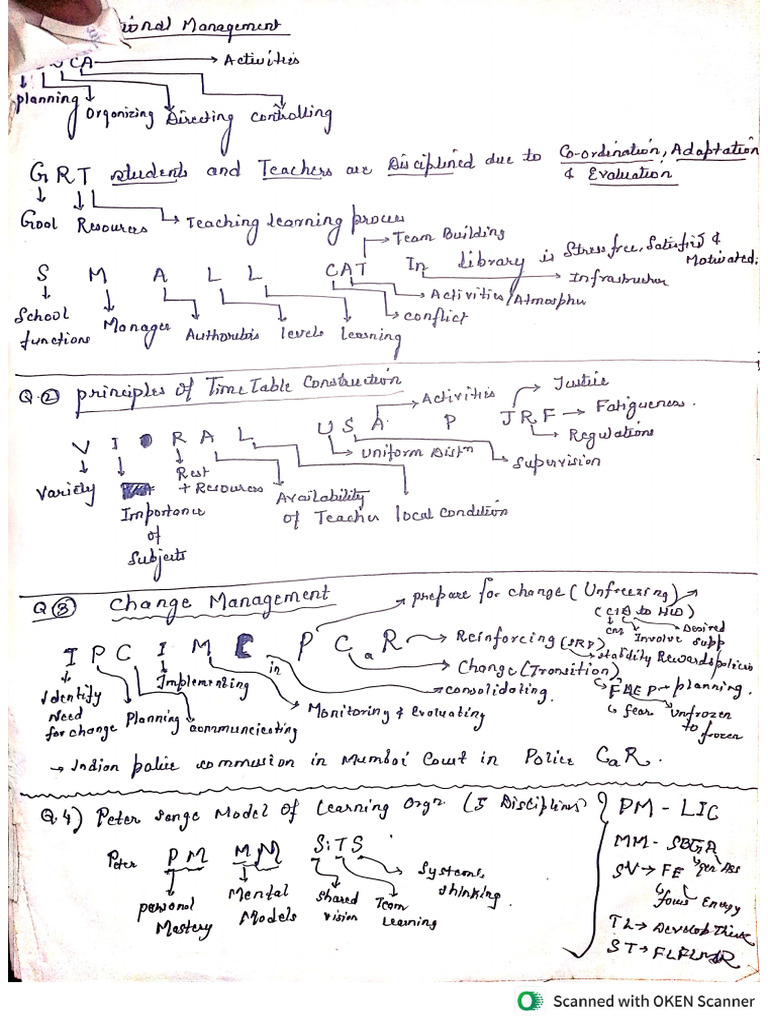 ional Management
CA → Activities
planning Organizing Directing Controlling
GRT students and Teachers are Disciplined due to Co-ordination, Adaptation
& Evaluation
Gool Resources Teaching learning process
Team Building
S M A L L CAT In Library is Stress free, Satisfied &
Motivated.
Infrastructur
Activities/Atmosphu
conflict
School
functions Manager levels learning
Q.2) principles of Time Table Construction
Activities Justice
V I R A L U S A P J R F → Fatigueness.
Regulations
uniform Distn Supervision
Variety Rest
+ Resources Availability
of Teacher local condition
Importance
of
Subjects
Q 3) Change Management
prepare for change (Unfreezing)
Desired
Involve supp
I P C I M C P C a R Reinforcing (SRP)
in
Stability Rewards policies
Change (Transition)
planning.
Implementing consolidating.
Identify
Need
for change Planning communcicating Monitoring & Evaluating
fear unfrozen
to
frozen
→ Indian police commission in Mumbai Court in Police CaR.
Q.4) Peter Senge Model Of Learning Orgn (5 Disciplines)
PM - LIC
Peter PM MM SiTS
Systems
thinking.
personal
Mastery
Mental
Models
Shared
vision
Team
Learning
SV → FE
focus Energy
TL → Develop Think
Scanned with OKEN Scanner